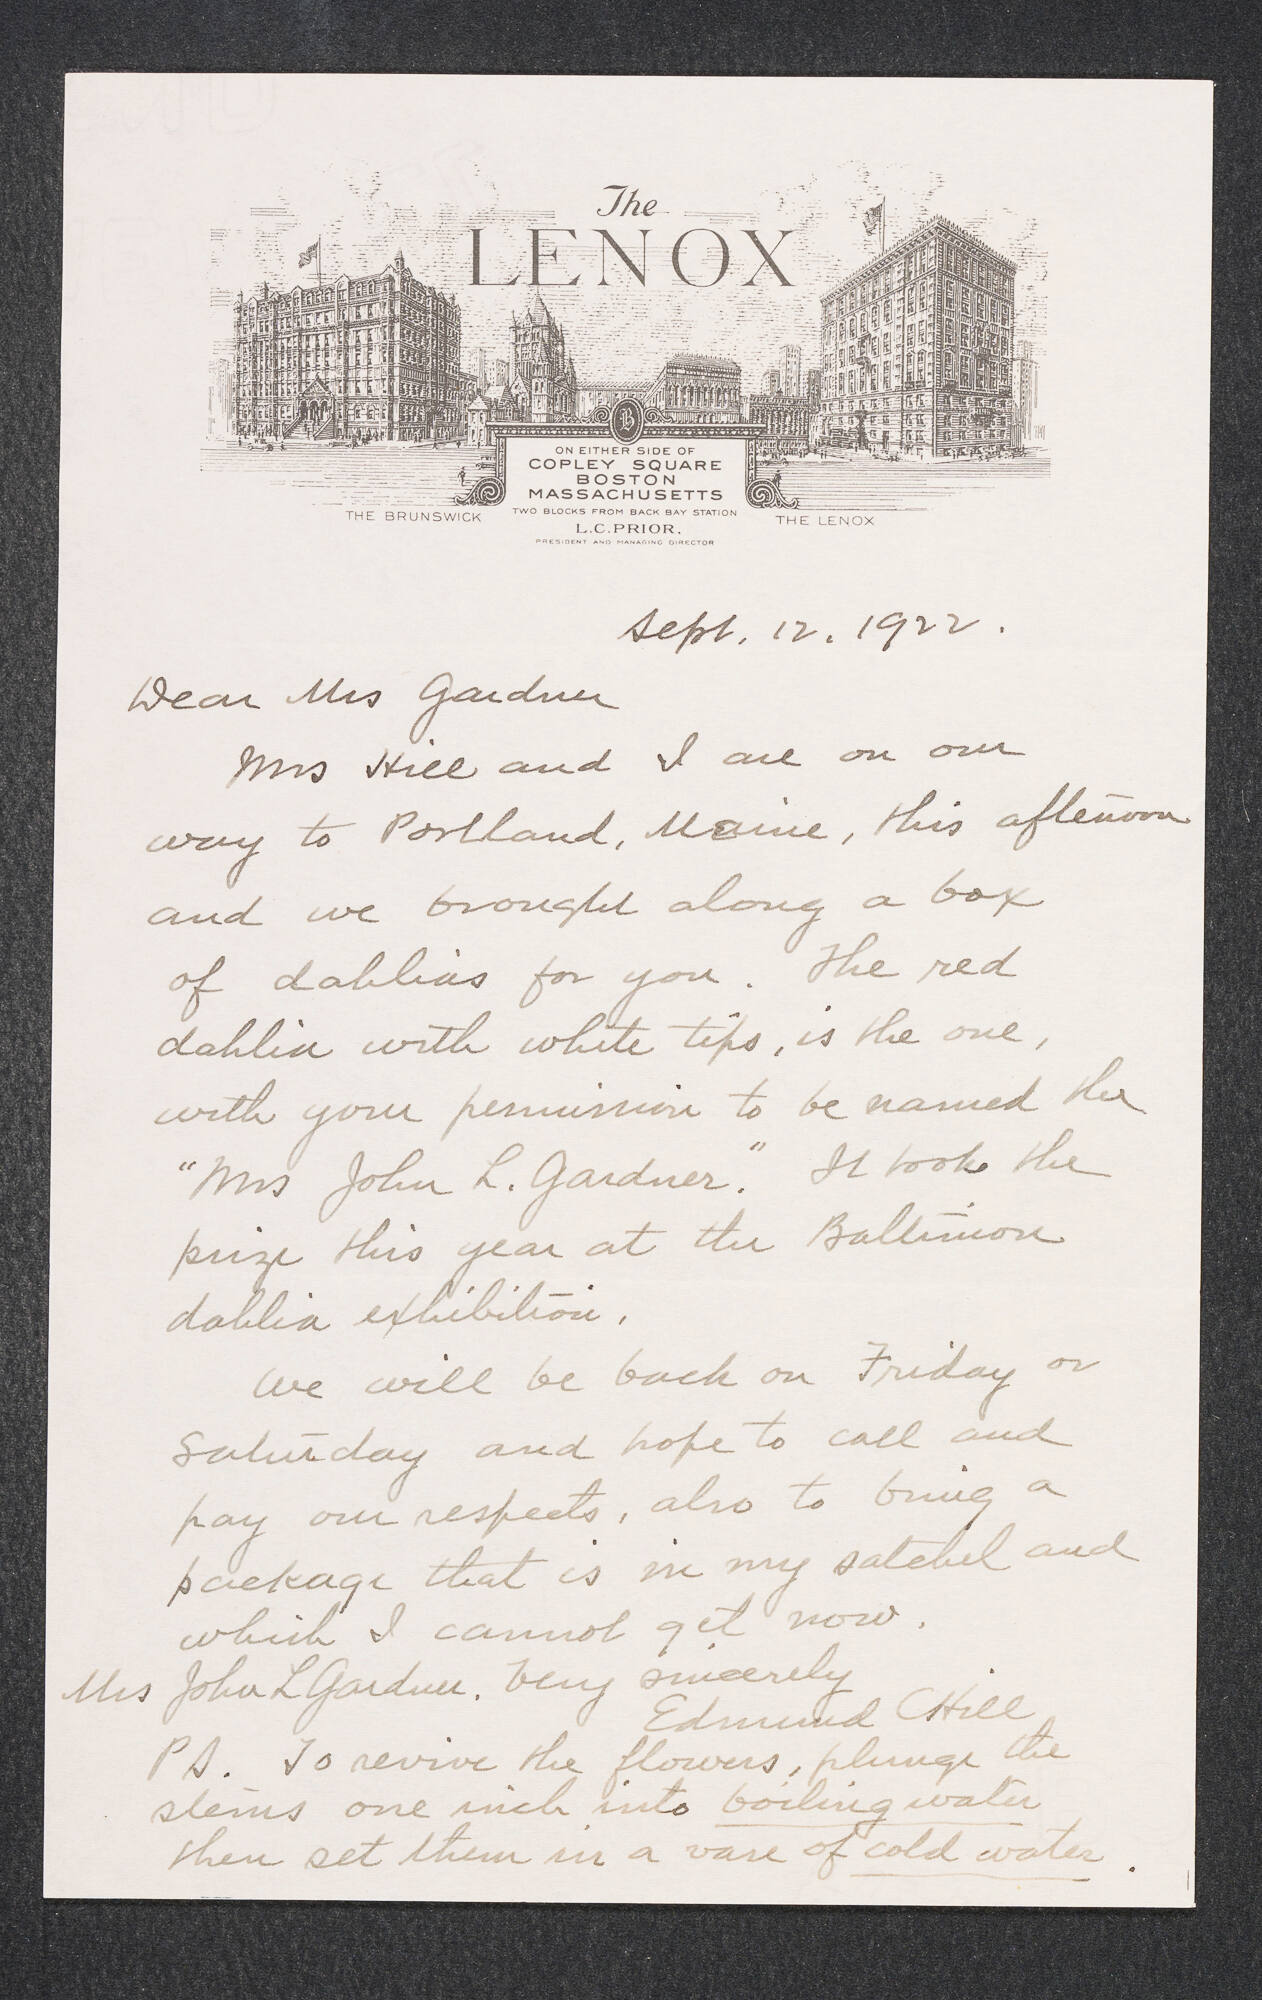 The
LENOX
ON EITHER SIDE OF
COPLEY SQUARE
BOSTON
MASSACHUSETTS
TWO BLOCKS FROM BACK BAY STATION
L.C. PRIOR,
PRESIDENT AND MANAGING DIRECTOR
THE BRUNSWICK
THE LENOX
Sept. 12. 1922.
Dear Mrs Gardner
Mrs Hill and I are on our
way to Portland, Maine, this afternoon
and we brought along a box
of dahlias for you. The red
dahlia with white tips, is the one,
with your permission to be named the
"Mrs John L. Gardner." It took the
prize this year at the Baltimore
dahlia exhibition.
We will be back on Friday or
Saturday and hope to call and
pay our respects, also to bring a
package that is in my satchel and
which I cannot get now.
Mrs John L Gardner. Very sincerely
Edmund C Hill
P S. To revive the flowers, plunge the
stems one inch into boiling water
then set them in a vase of cold water.